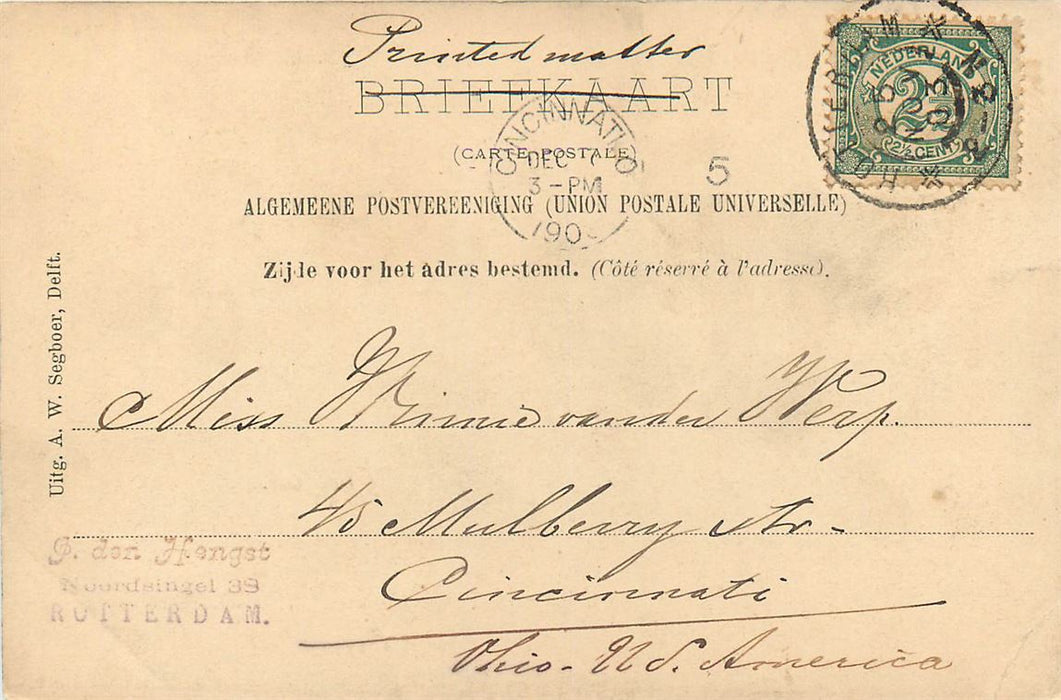 Printed matter
BRIEFKAART
(CARTE POSTALE)
ALGEMEENE POSTVEREENIGING (UNION POSTALE UNIVERSELLE)
Zijde voor het adres bestemd. (Côté réservé à l'adresse).
NEDERLAND
2½
2½ CENT
ROTTERDAM
CINCINNATI O
DEC 7
3-PM
190
5
Uitg. A. W. Segboer, Delft.
Miss Winnie van der Werp.
45 Mulberry str-
Cincinnati
Ohio - U S. America
P. den Hengst
Noordsingel 39
ROTTERDAM.